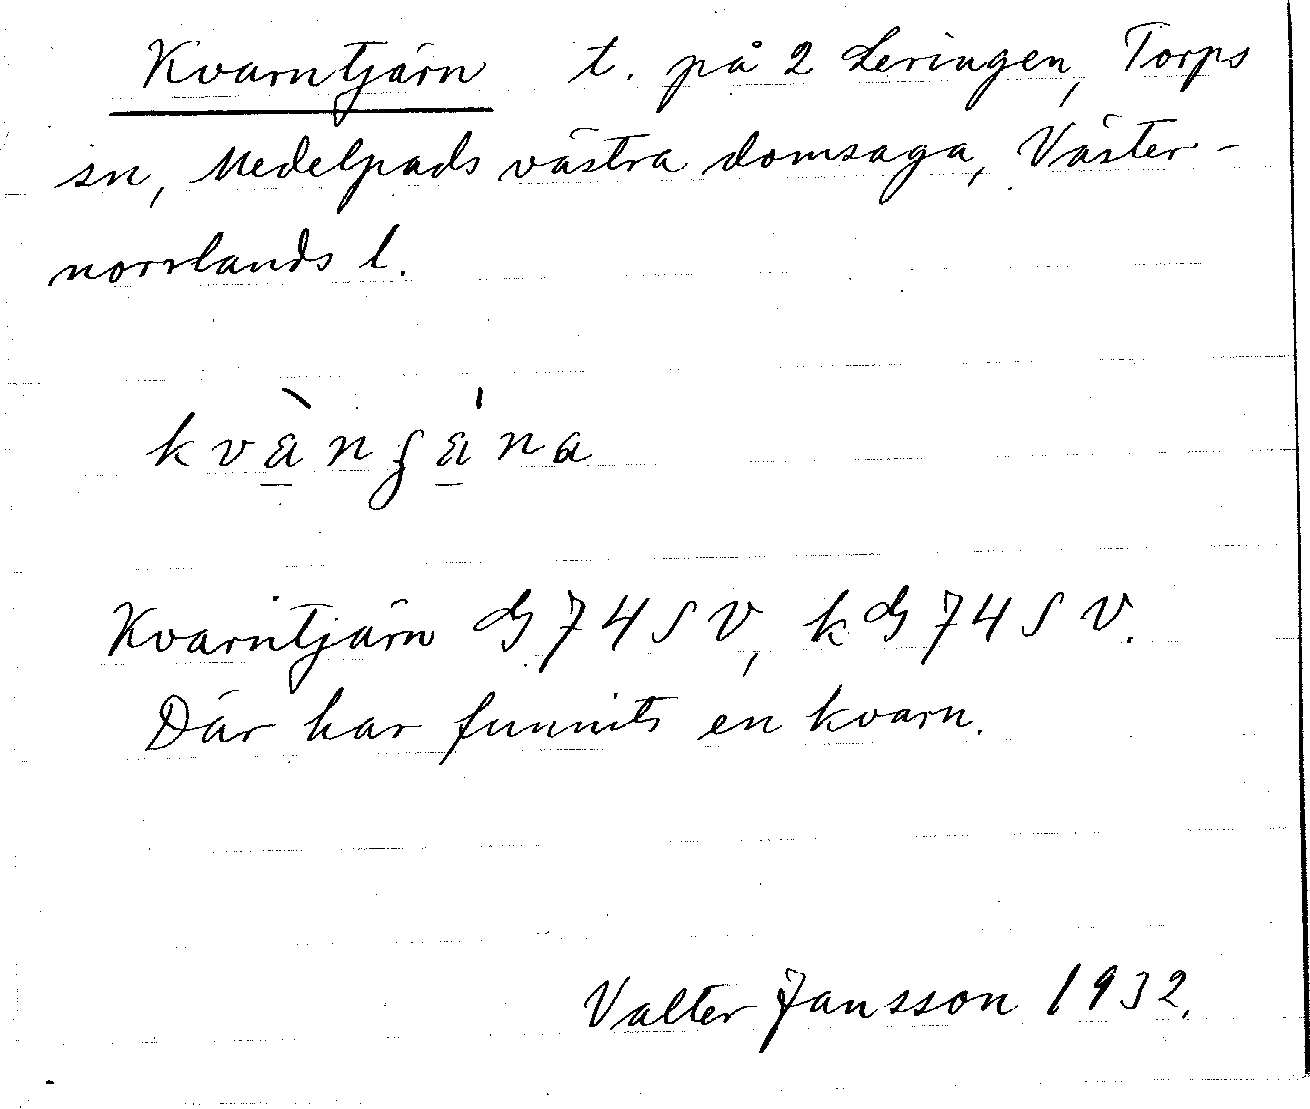 Kvarntjärn t. på 2 Leringen, Torps
sn, Medelpads västra domsaga, Väster-
norrlands l.
kvànʃána
Kvarntjärn G 74 S V, k G 74 S V.
Där har funnits en kvarn.
Valter Jansson 1932.